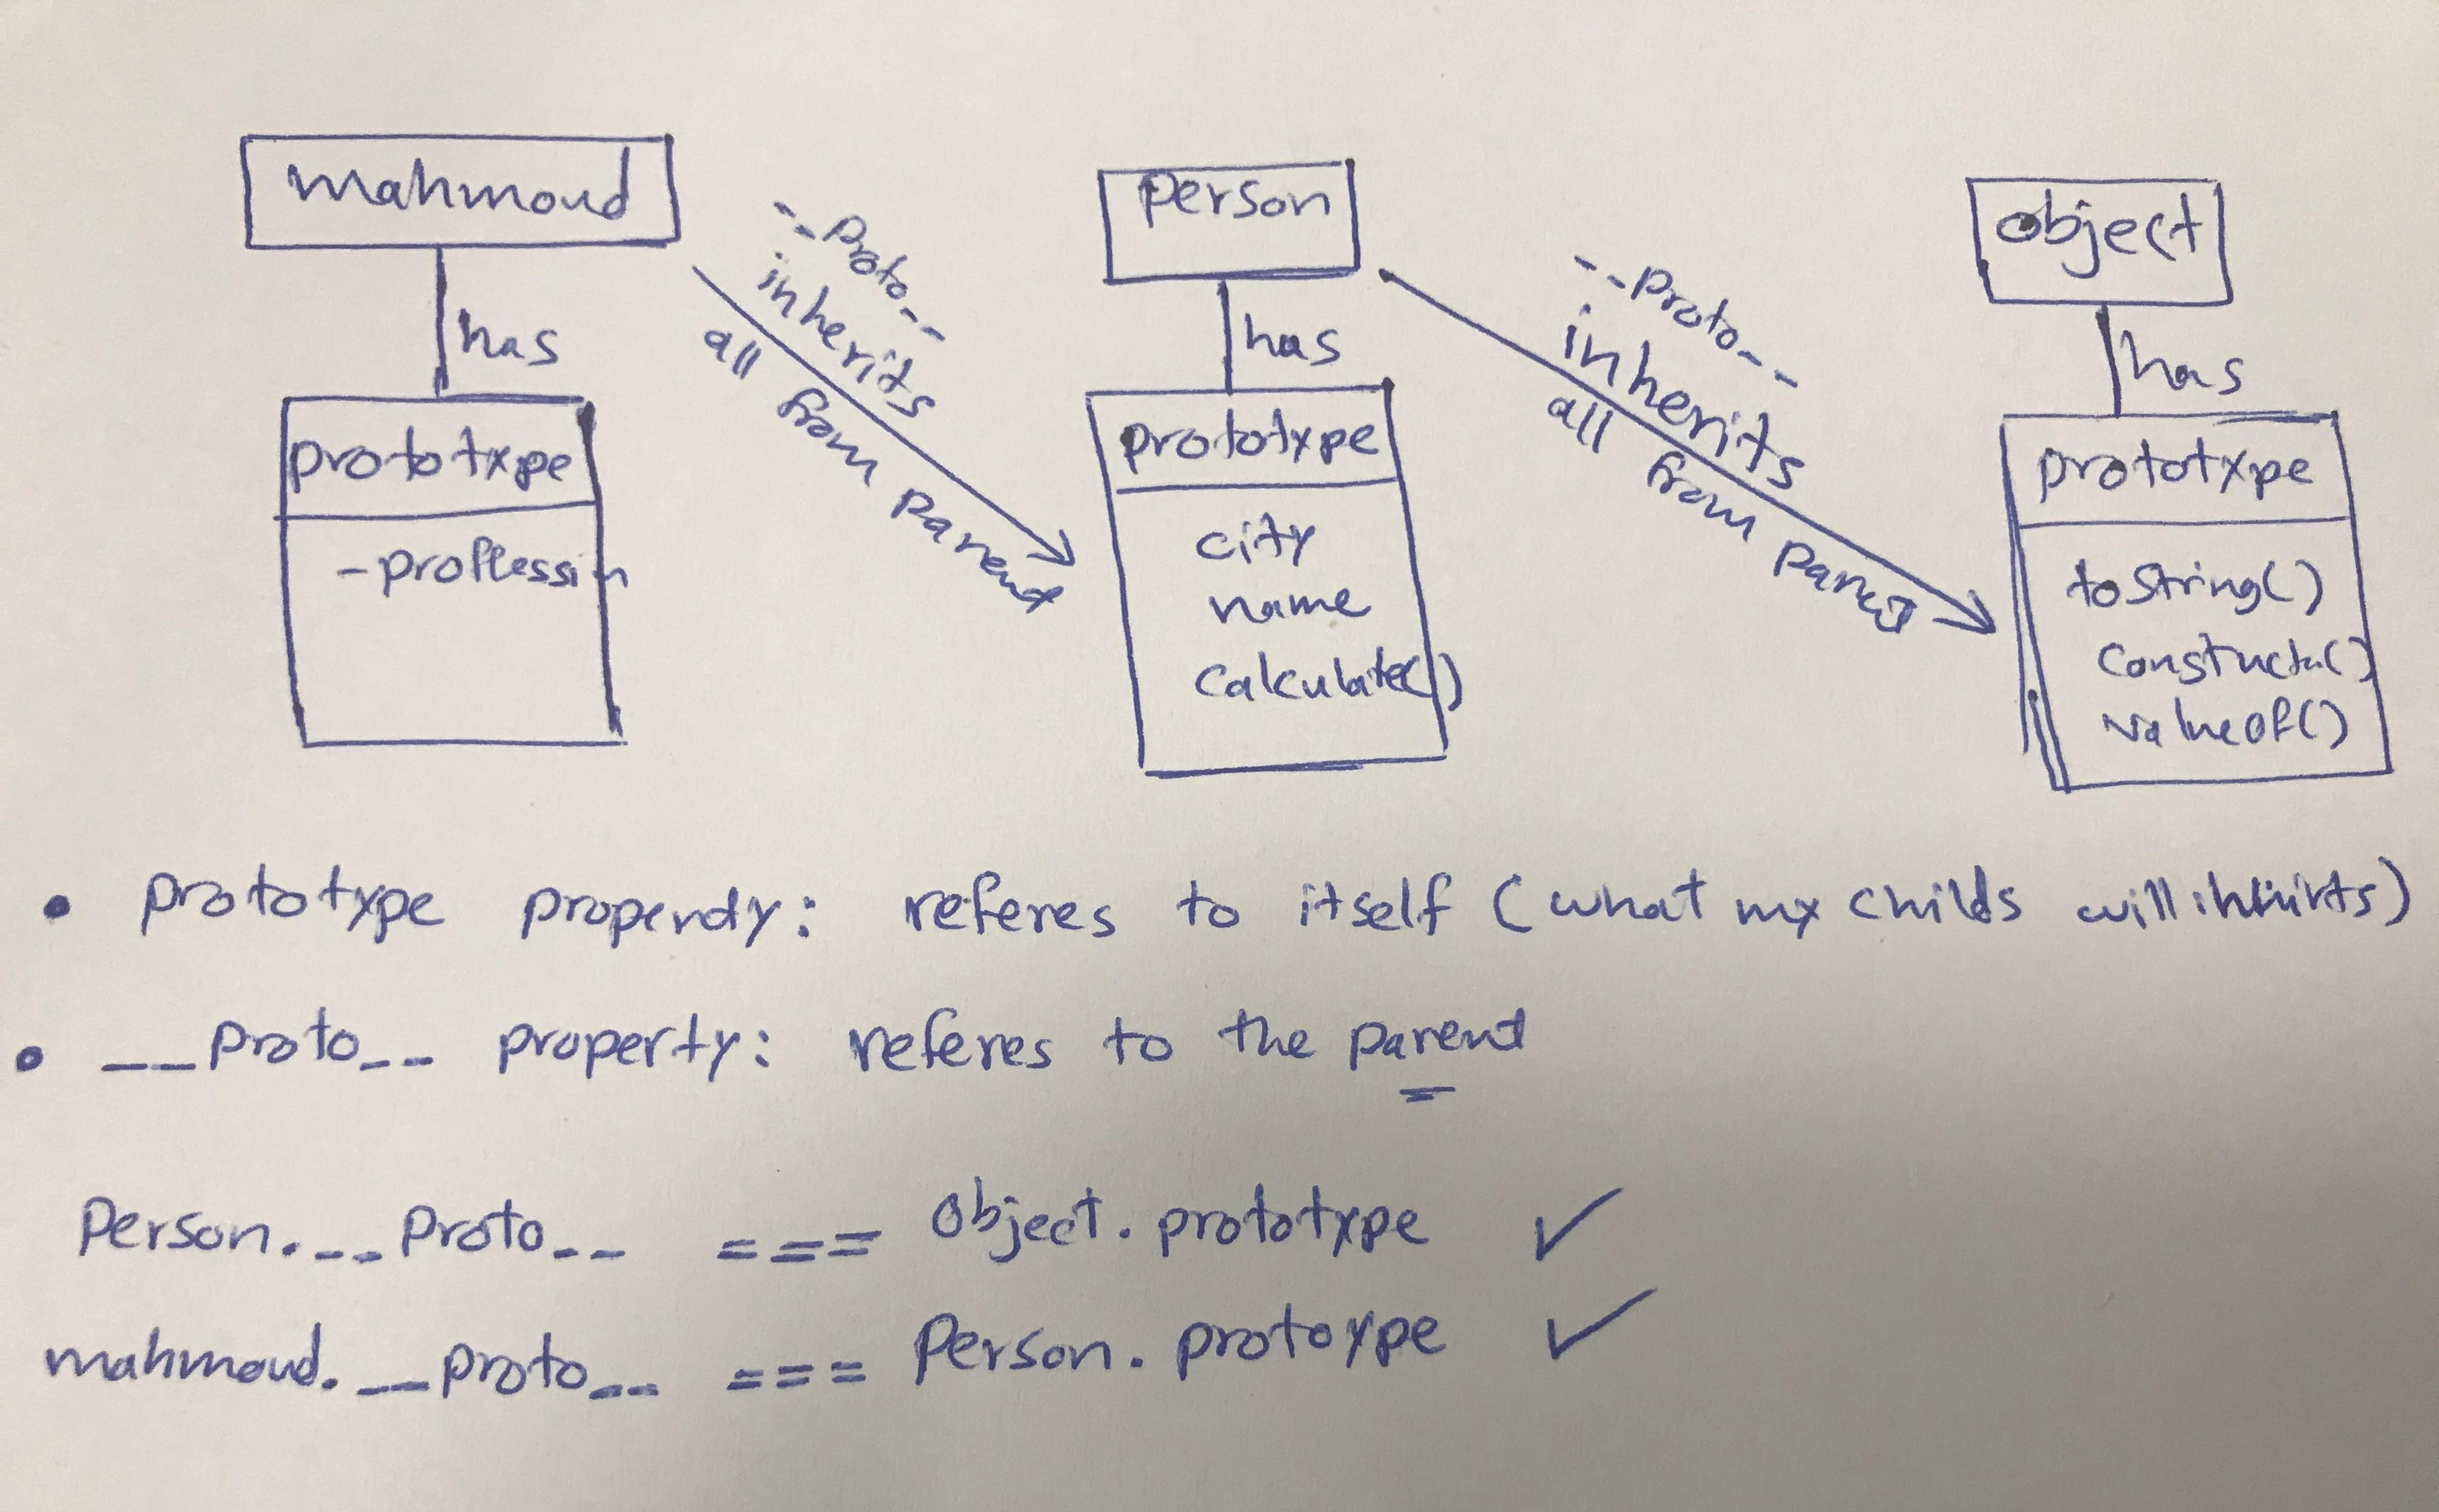 mahmoud
has
prototype
-proffession
--proto--
inherits
all from parent
person
has
prototype
city
name
calculate()
--proto--
inherits
all from parent
object
has
prototype
toString()
Constuctor()
valueOf()
• prototype property: referes to itself (what my childs will inhirts)
• __proto__ property: referes to the parent
Person.__proto__ === Object.prototype ✓
mahmoud.__proto__ === Person.protoype ✓